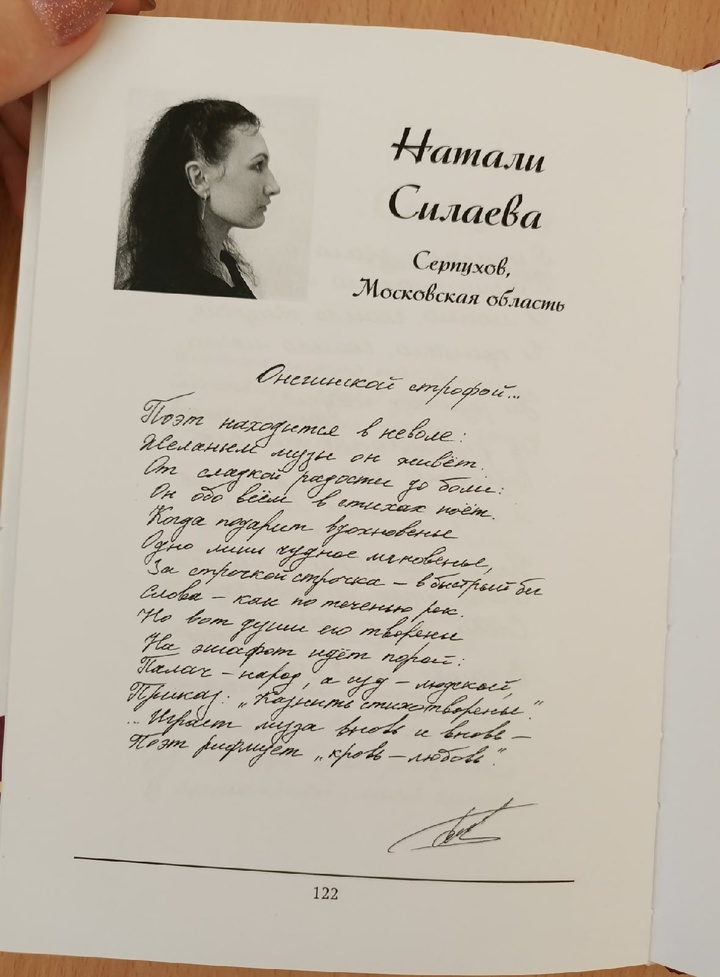 Натали
Силаева
Серпухов,
Московская область
Онегинской строфой...
Поэт находится в неволе:
Желаньем музы он живёт.
От сладкой радости до боли:
Он обо всём в стихах поёт.
Когда подарит вдохновенье
Одно лишь чудное мгновенье,
За строчкой строчка – в быстрый бег
Слова – как по теченью рек.
Но вот души его творенье
На эшафот идёт порой:
Палач – народ, а суд – людской,
Приказ: „Казнить стихотворенье".
...Играет муза вновь и вновь –
Поэт рифмует „кровь – любовь".
122